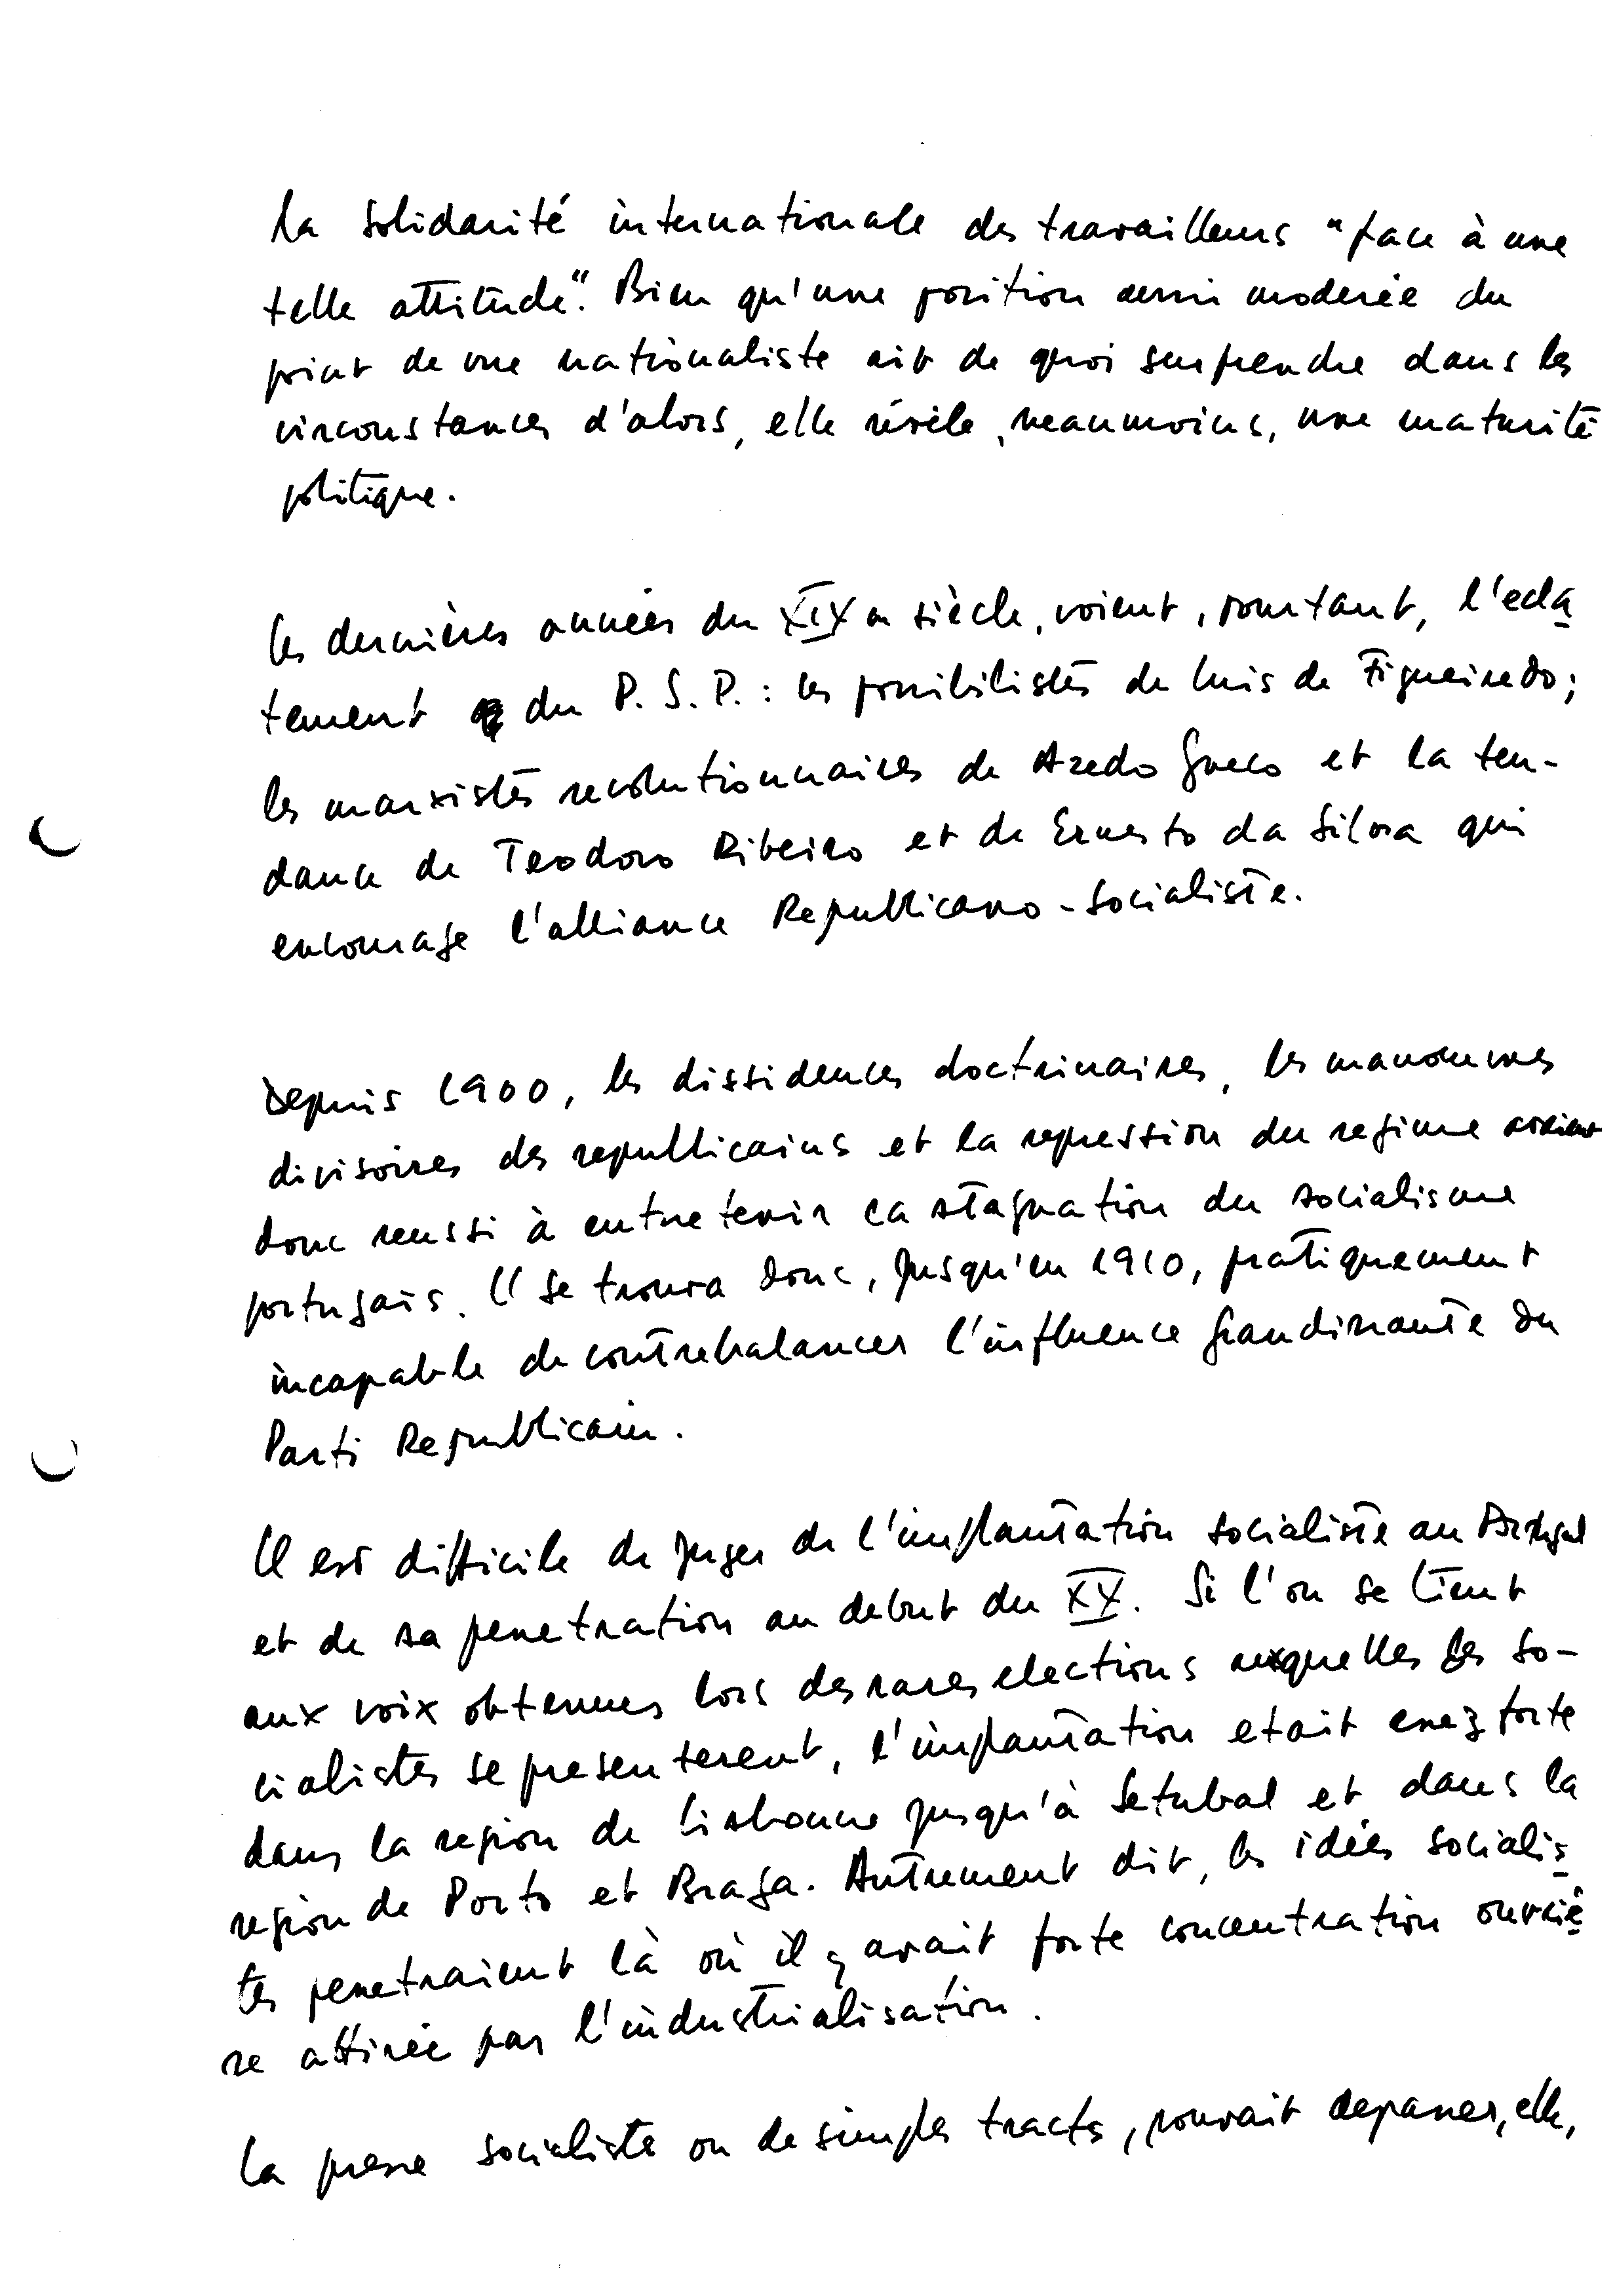 la solidarité internationale des travailleurs "face à une
telle attitude". Bien qu'une position aussi moderée du
point de vue nationaliste ait de quoi surprendre dans les
circonstances d'alors, elle révèle, neanmoins, une maturité
politique.
les dernières années du XIXe siècle, voient, pourtant, l'ecla
tement du P.S.P.: les possibilistes de Luis de Figueiredo;
les marxistes revolutionnaires de Azedo Gneco et la ten-
dance de Teodoro Ribeiro et de Ernesto da Silva qui
encourage l'alliance Republicano-Socialiste.
Depuis 1900, les dissidences doctrinaires, les manoeuvres
divisoires des republicains et la repression du regime avaient
donc reussi à entretenir la stagnation du socialisme
portugais. Il se trouva donc, jusqu'en 1910, pratiquement
incapable de contrebalancer l'influence grandissante du
Parti Republicain.
Il est difficile de juger de l'implantation socialiste au Portugal
et de sa penetration au debut du XX. Si l'on se tient
aux voix obtenues lors des rares elections auxquelles les so-
cialistes se presenterent, l'implantation etait assez forte
dans la region de Lisbonne jusqu'à Setubal et dans la
region de Porto et Braga. Autrement dit, les idées socialis
tes penetraient là où il y avait forte concentration ouvriè
re attirée par l'industrialisation.
La presse socialiste ou de simples tracts, pouvait depasser, elle,